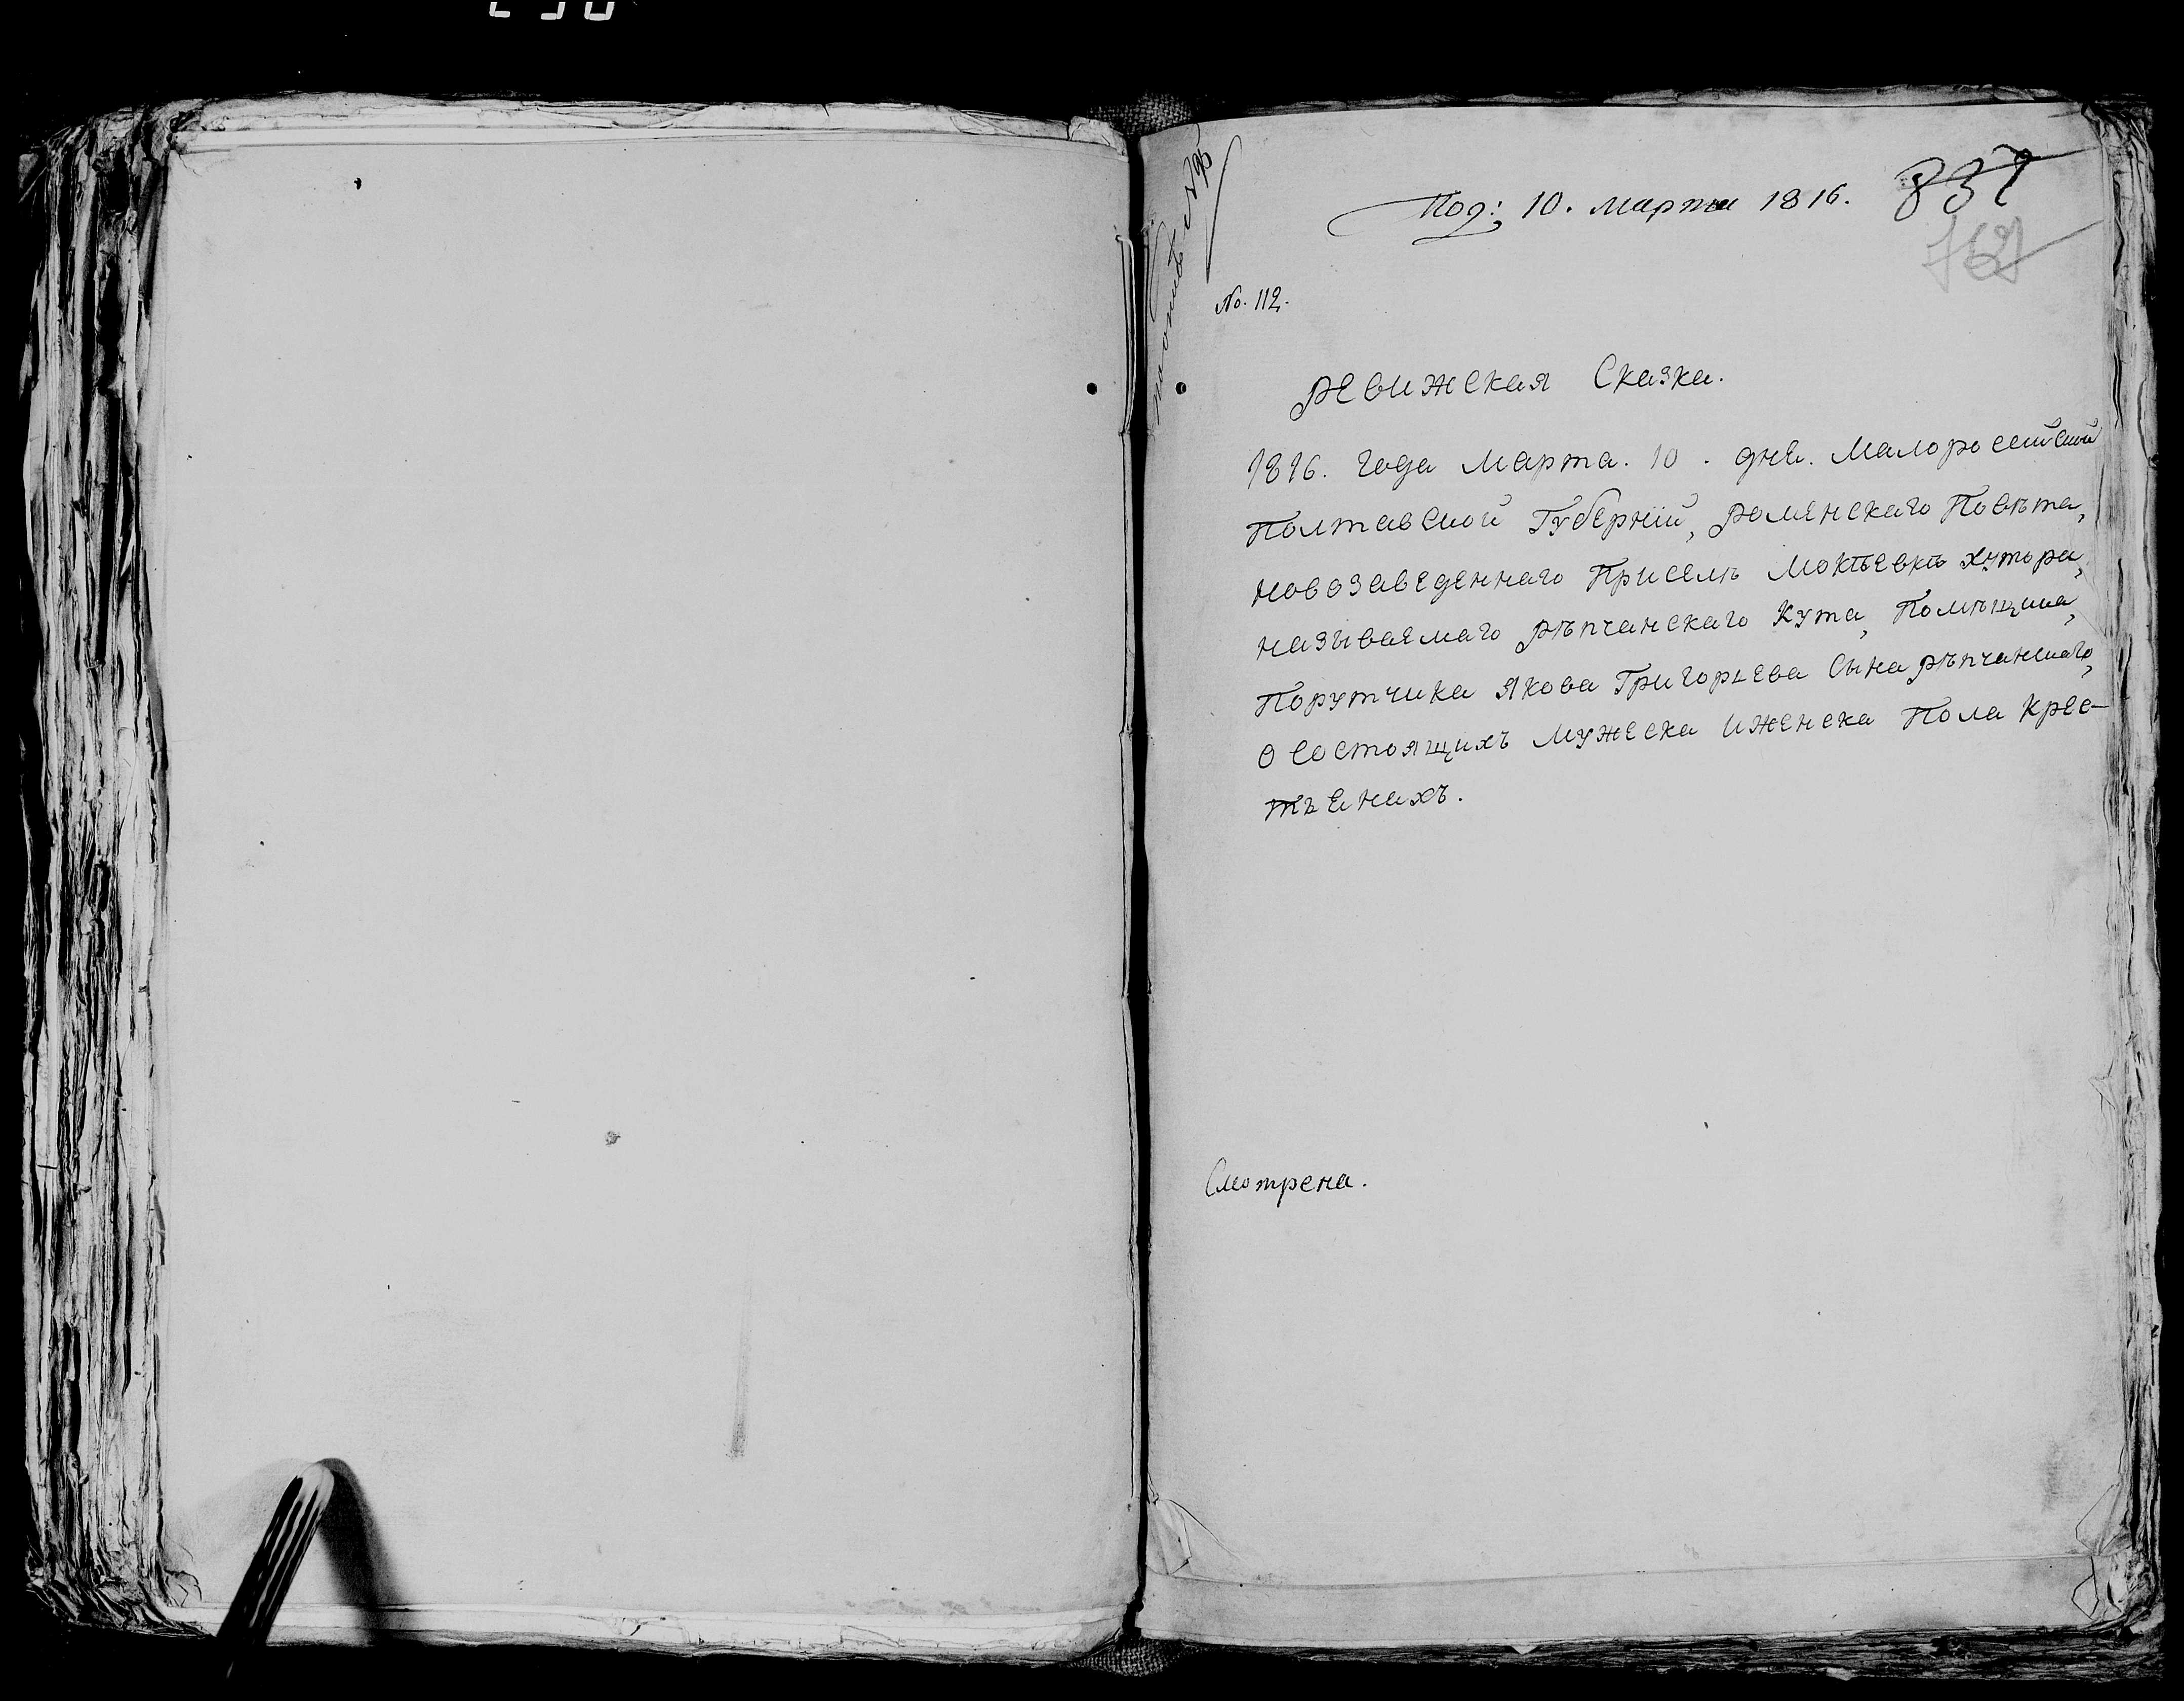 Под: 10. марта 1816.
837
No. 112.
Ревижская Сказка.
1816. года Марта. 10. дня. Малоросейской
Полтавской Губерніи, Роменскаго Повѣта,
новозаведеннаго Приселѣ Мокіевкѣ хутора,
называемаго Рѣпчанскаго Кута, Помѣщика,
Порутчика Якова Григорьева Сына Рѣпчанскаго,
О Состоящихъ Мужеска иженска Пола Крес-
тьянахъ.
Смотрена.